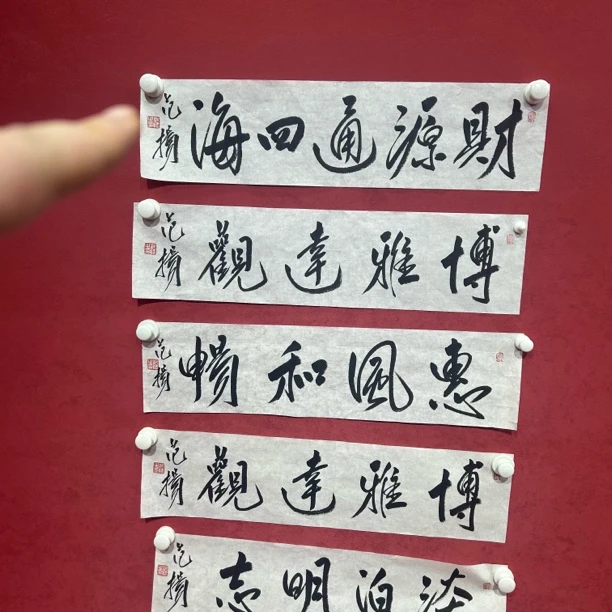 財源通四海 范揚
博雅達觀 范揚
惠風和暢 范揚
博雅達觀 范揚
淡泊明志 范揚